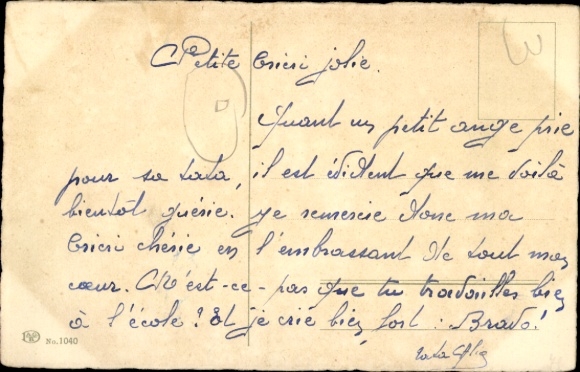 Petite Cricri jolie.
Quant un petit ange prie
pour sa tata, il est évident que me voilà
bientôt guérie. Je remercie donc ma
Cricri chérie en l'embrassant de tout mon
cœur. N'est-ce-pas que tu travailles bien
à l'école? Et je crie bien fort: Bravo!
tata
No. 1040